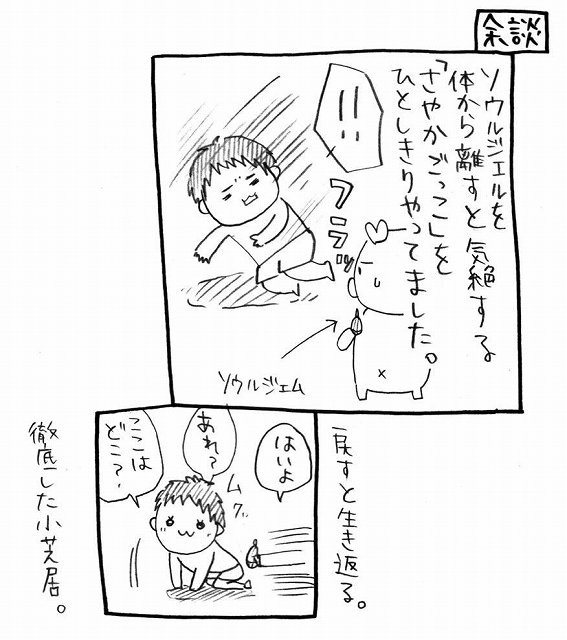 余談
ソウルジェルを
体から離すと気絶する
「さやかごっこ」を
ひとしきりやってました。
!!
フラッ
ソウルジェム
戻すと生き返る。
はいよ
ムク。
あれ?
ここは
どこ?
徹底した小芝居。